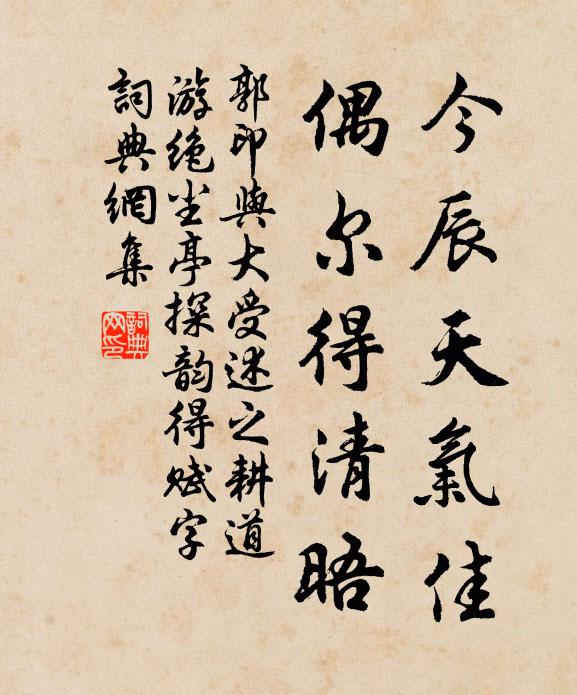 今辰天氣佳
偶尔得清晤
郭印與大受述之耕道
游绝尘亭探韵得赋字
詞典網集
詞典
网印